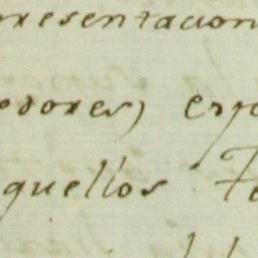 resentacion
edores) esp
quellos Te